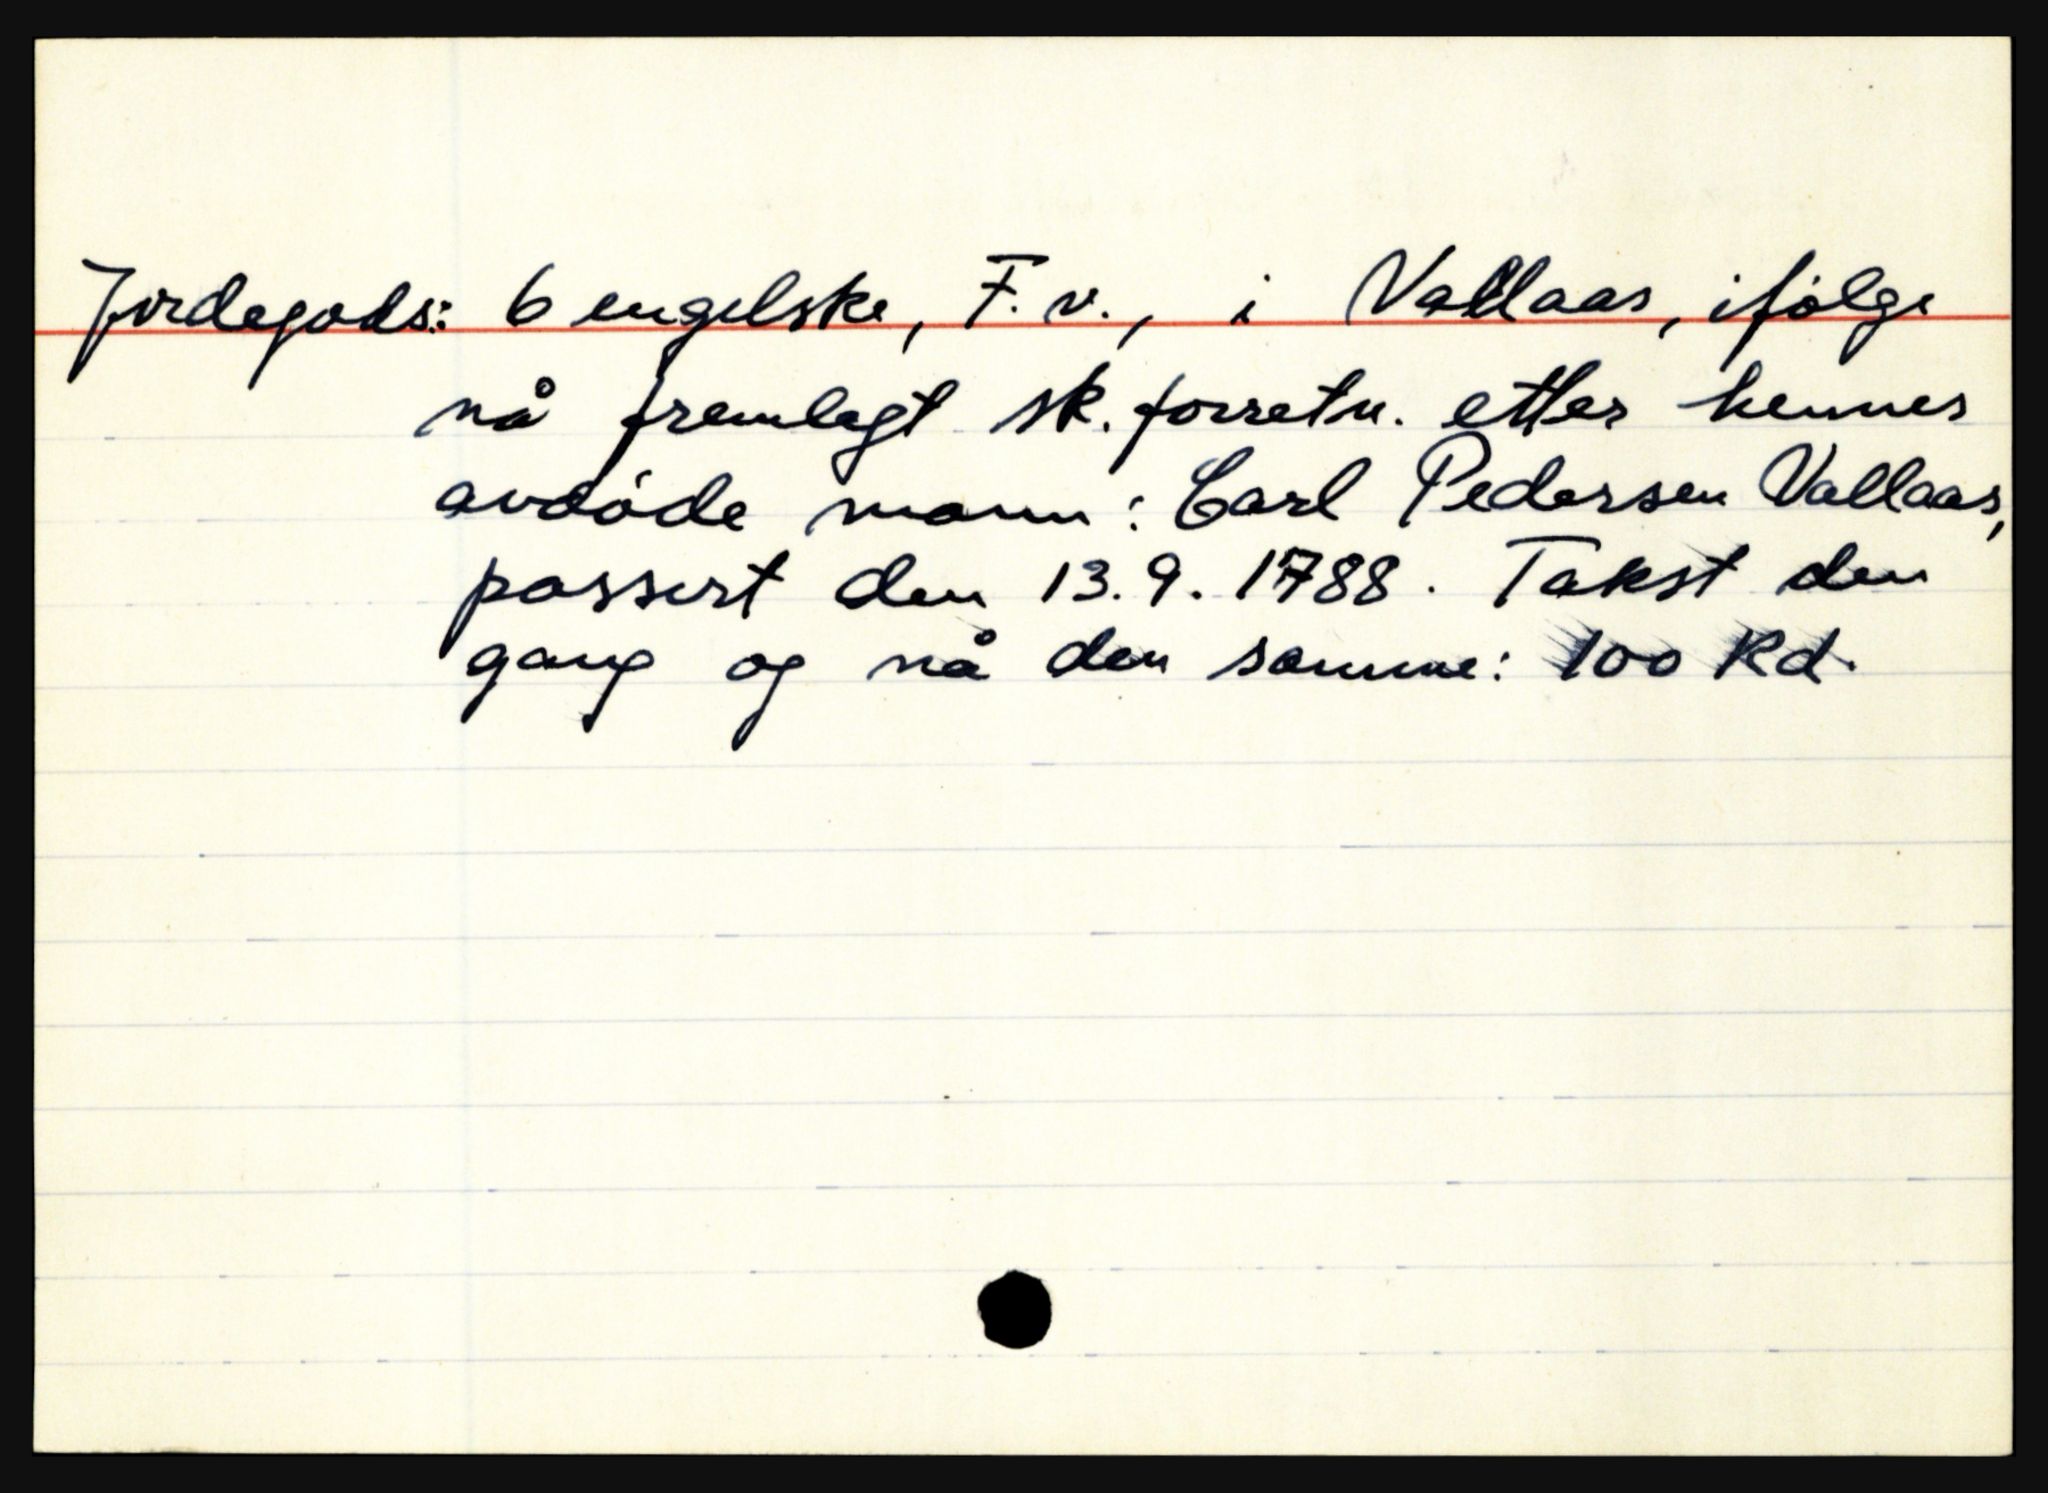 Jordegods: 6 engelske, F.v., i Vallaas, ifølge
nå fremlagt sk.forretn. etter hennes
avdøde mann: Carl Pedersen Vallaas,
passert den 13.9.1788. Takst den
gang og nå den samme: 100 Rd.